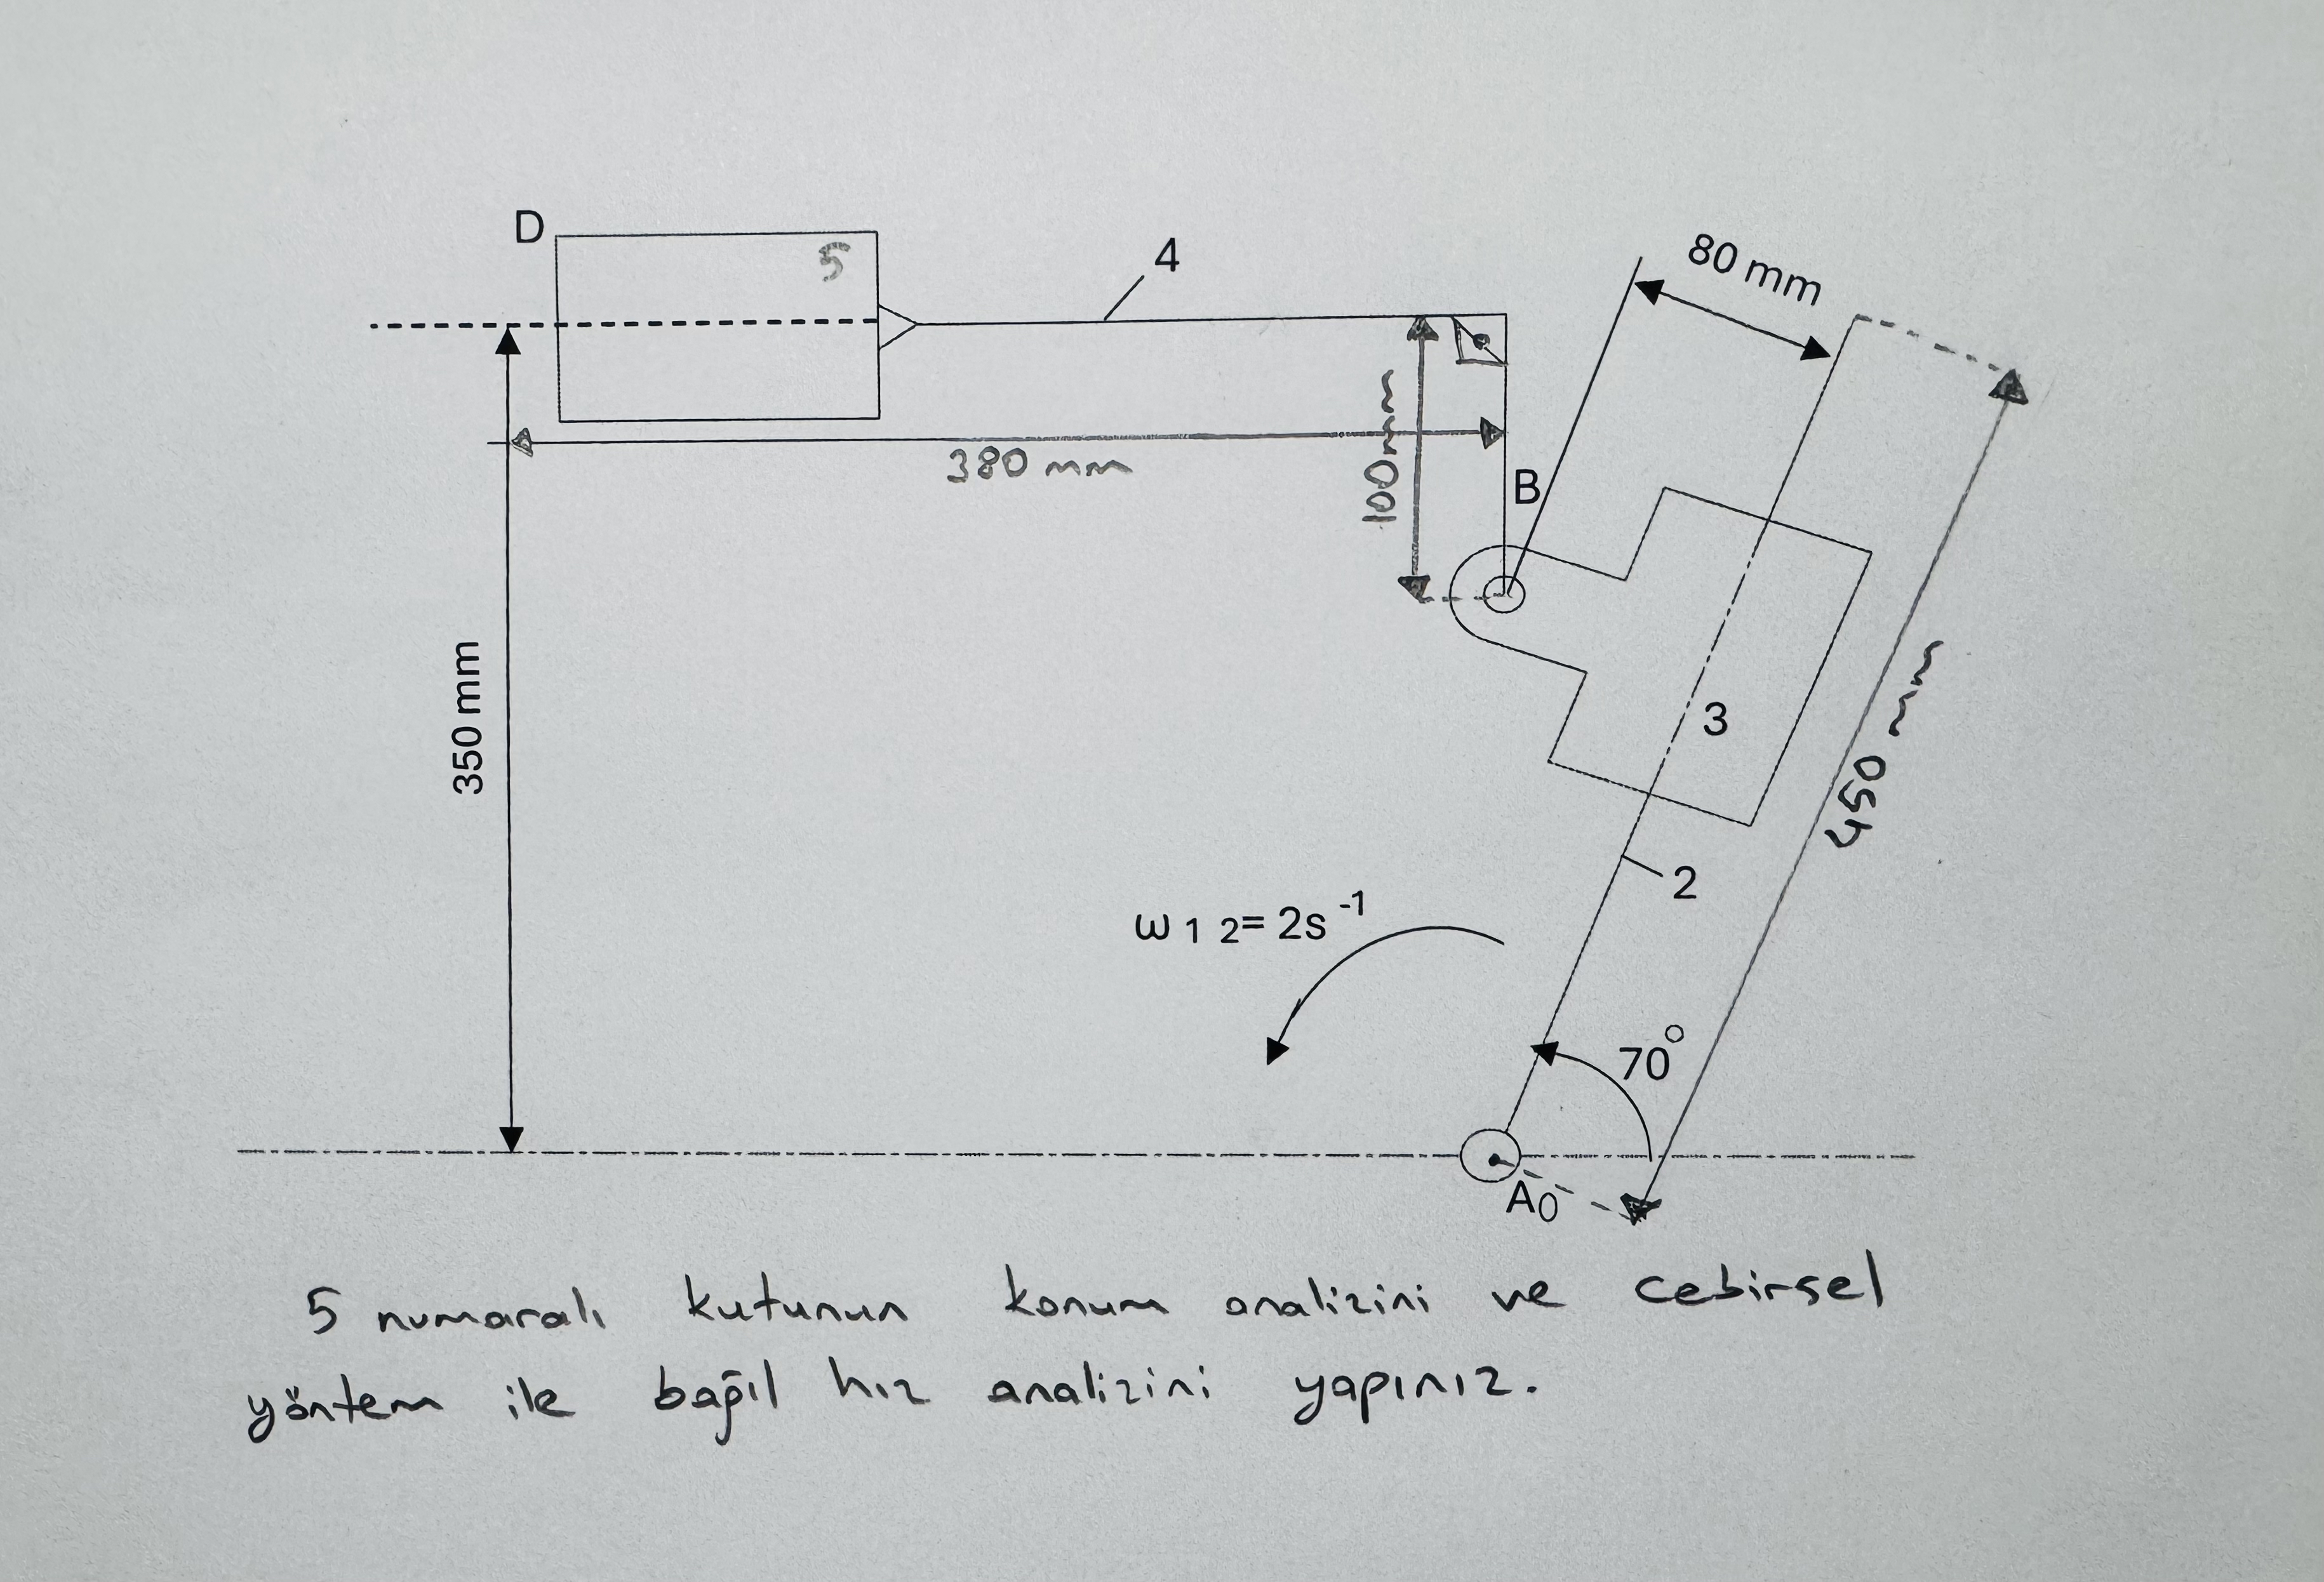 D
5
4
80 mm
380 mm
100mm
B
350 mm
3
450 mm
2
ω 1 2= 2s⁻¹
70°
A0
5 numaralı kutunun konum analizini ve cebirsel
yöntem ile bağıl hız analizini yapınız.